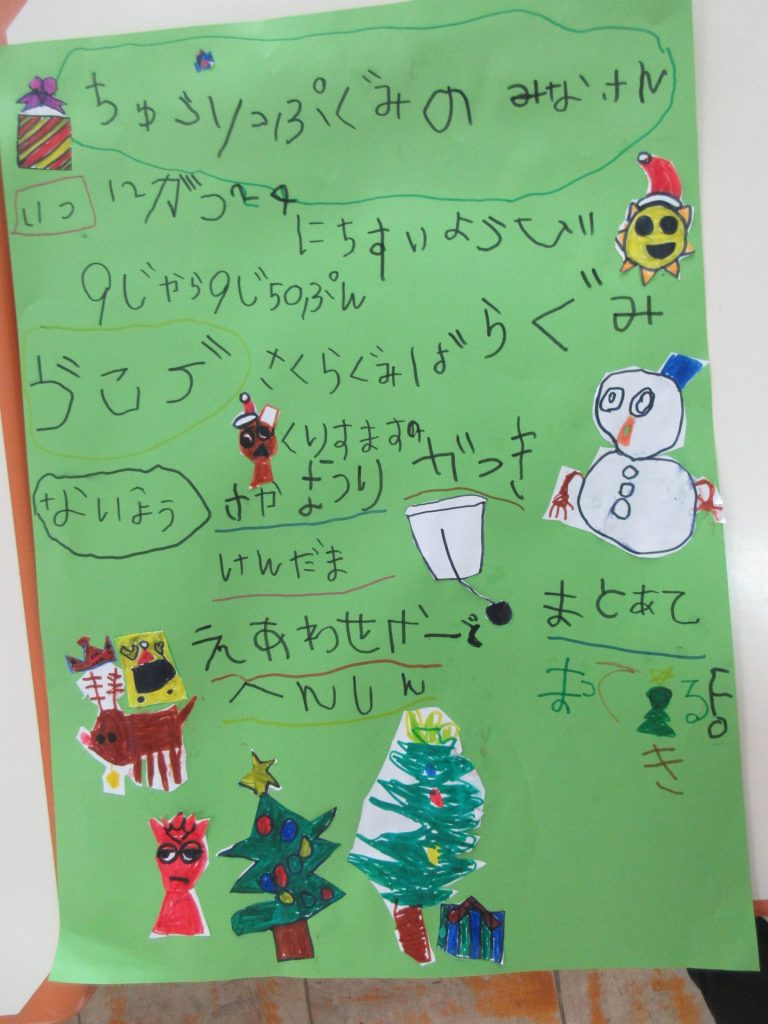 ちゅうりっぷぐみの みなさん
いつ 12がつ24
にちすいようび
9じから9じ50ぷん
どこで さくらぐみ ばらぐみ
くりすますの がっき
ないよう さかなつり
けんだま
えあわせげーむ まとあて
へんしん まってるよ
き